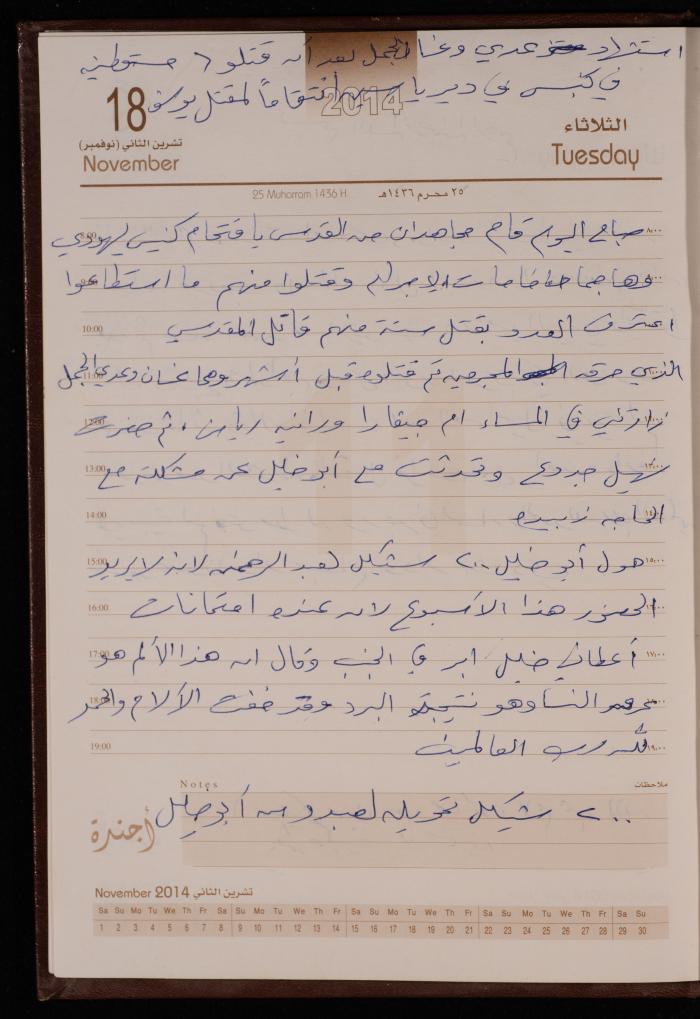 استشهاد عدي وغسان الجمل بعد أن قتلوا ٤ مستوطنين
في كنيس في دير ياسين انتقاماً لمقتل يوسف
2014
18
تشرين الثاني (نوفمبر)
November
الثلاثاء
Tuesday
25 Muharram 1436 H. ٢٥ محرم ١٤٣٦هـ
صباح اليوم قام مجاهدان من القدس باقتحام كنيس يهودي
وهاجما حاخامات وقتلوا منهم ما استطاعوا
اعترف العدو بقتل ستة منهم قاتل المقدسي
الذي حرقه المجرمين ثم قتلوه قبل أشهر وهما غسان وعدي الجمل
زارتني في المساء ام جيفارا ورانيه ريان، ثم حضرت
سهيل جدوع وتحدثت مع أبو خليل عن مشكلته مع
الحاجه زبيده
حول أبو خليل ٢٠٠ شيكل لعبد الرحمن لانه لا يريد
الحضور هذا الأسبوع لان عنده امتحانات
أعطاني خليل ابر في الجنب وقال ان هذا الألم هو
عرق النسا وهو نتيجة البرد وقد خفت الآلام والحمد
لله رب العالمين
8:00 ٨:٠٠
10:00
11:00
12:00
13:00 ١٣:٠٠
14:00
15:00 ١٥:٠٠
16:00
17:00 ١٧:٠٠
18:00
19:00 ١٩:٠٠
Notes ملاحظات
٢٠٠ شيكل تحويله لعبد من أبو خليل
أجندة
November 2014 تشرين الثاني
Sa Su Mo Tu We Th Fr Sa Su Mo Tu We Th Fr Sa Su Mo Tu We Th Fr Sa Su Mo Tu We Th Fr Sa Su
1 2 3 4 5 6 7 8 9 10 11 12 13 14 15 16 17 18 19 20 21 22 23 24 25 26 27 28 29 30